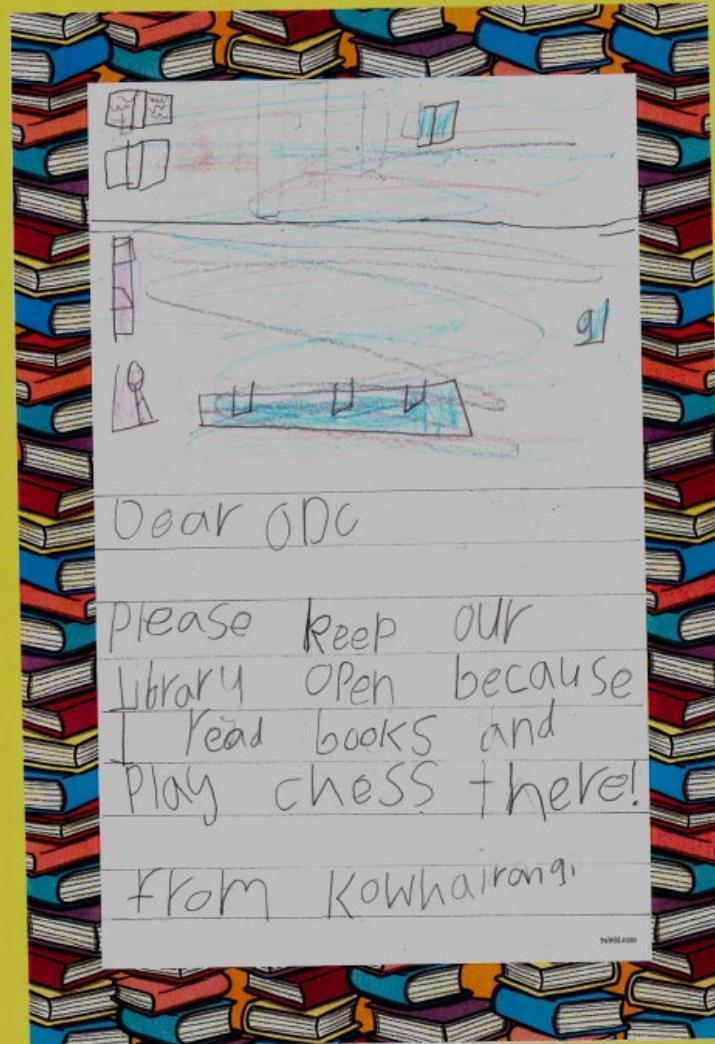 g
Dear ODC
please keep our
Library open because
I read books and
play chess there!
from Kowhairangi
twinkl.com